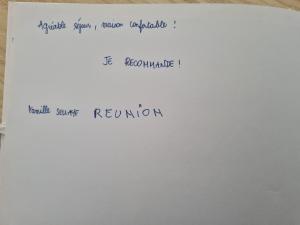 Agréable séjour, maison confortable !
JE RECOMMANDE !
Famille REUNION